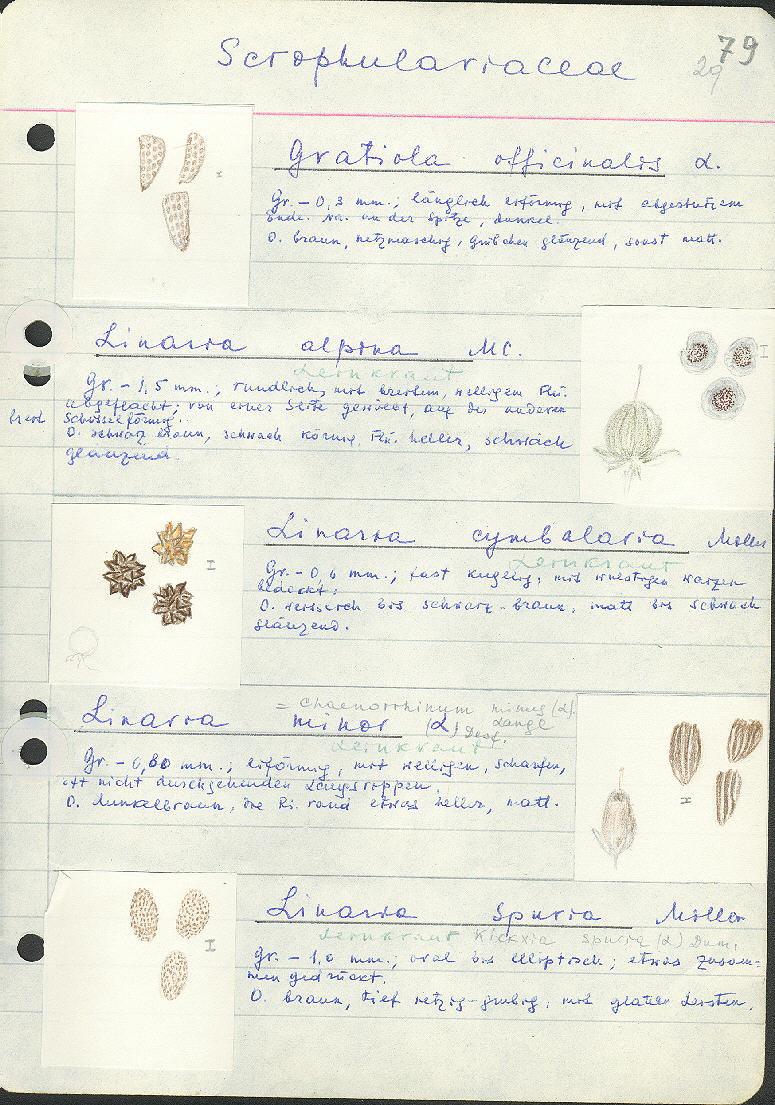 79
29
Scrophulariaceae
Gratiola officinalis L.
Gr. – 0,3 mm.; länglich eiförmig, mit abgestutztem
Ende. Na. an der Spitze, dunkel.
O. braun, netzmaschig, Grübchen glänzend, sonst matt.
Linaria alpina MC.
Leinkraut
Gr. – 1,5 mm.; rundlich, mit breitem, welligem Flü.
abgeflacht; von einer Seite gewölbt, auf der anderen
Schüsselförmig.
O. schwarz braun, schwach körnig, Flü. heller, schwach
glänzend.
Linaria cymbalaria Miller
Leinkraut
Gr. – 0,6 mm.; fast kugelig, mit wulstigen Warzen
bedeckt;
O. weisslich bis schwarz-braun, matt bis schwach
glänzend.
= Chaenorrhinum minus (L).
Lange
Linaria minor (L) Desf.
Leinkraut
Gr. – 0,80 mm.; eiförmig, mit welligen, scharfen,
oft nicht durchgehenden Längsrippen.
O. dunkelbraun, die Ri. rand etwas heller, matt.
Linaria spuria Miller
Leinkraut Kickxia spuria (L) Dum.
Gr. – 1,0 mm.; oval bis elliptisch; etwas zusam-
men gedrückt.
O. braun, tief netzig-grubig, mit glatten Leisten.